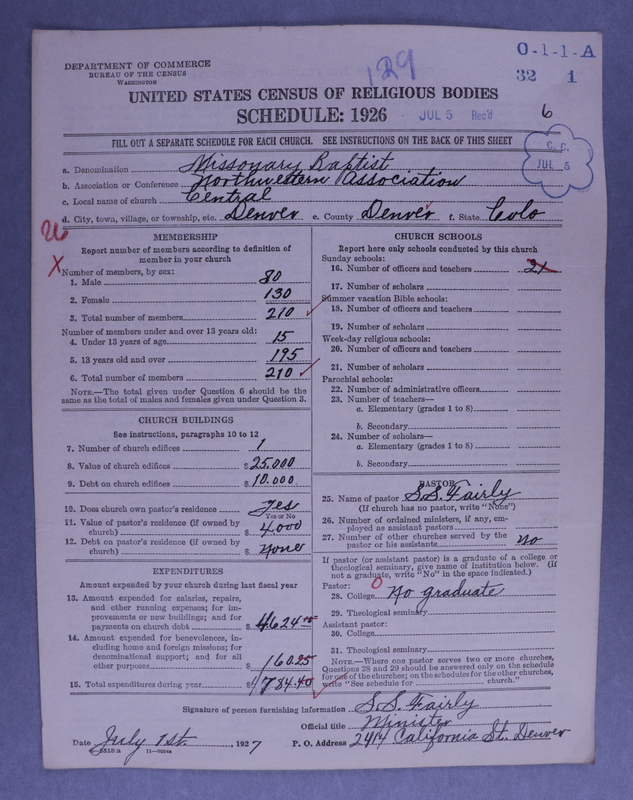 DEPARTMENT OF COMMERCE
BUREAU OF THE CENSUS
WASHINGTON
129
O-1-1-A
32 1
UNITED STATES CENSUS OF RELIGIOUS BODIES
SCHEDULE: 1926
JUL 5 Rec'd
6
FILL OUT A SEPARATE SCHEDULE FOR EACH CHURCH. SEE INSTRUCTIONS ON THE BACK OF THIS SHEET
C. C.
JUL 5
a. Denomination Missonary Baptist
b. Association or Conference Northwestern Association
c. Local name of church Central
d. City, town, village, or township, etc. Denver e. County Denver f. State Colo
26
X
MEMBERSHIP
Report number of members according to definition of
member in your church
Number of members, by sex:
1. Male 80
2. Female 130
3. Total number of members 210
Number of members under and over 13 years old:
4. Under 13 years of age 15
5. 13 years old and over 195
6. Total number of members 210
NOTE.—The total given under Question 6 should be the
same as the total of males and females given under Question 3.
CHURCH BUILDINGS
See instructions, paragraphs 10 to 12
7. Number of church edifices 1
8. Value of church edifices $ 25.000
9. Debt on church edifices $ 10.000
10. Does church own pastor's residence yes
Yes or No
11. Value of pastor's residence (if owned by
church) $ 4.000
12. Debt on pastor's residence (if owned by
church) $ none
EXPENDITURES
Amount expended by your church during last fiscal year
13. Amount expended for salaries, repairs,
and other running expenses; for im-
provements or new buildings; and for
payments on church debt $ 4624.15
14. Amount expended for benevolences, in-
cluding home and foreign missions; for
denominational support; and for all
other purposes $ 160.25
15. Total expenditures during year $ 4784.40
CHURCH SCHOOLS
Report here only schools conducted by this church
Sunday schools:
16. Number of officers and teachers 21
17. Number of scholars
Summer vacation Bible schools:
18. Number of officers and teachers
19. Number of scholars
Week-day religious schools:
20. Number of officers and teachers
21. Number of scholars
Parochial schools:
22. Number of administrative officers
23. Number of teachers—
a. Elementary (grades 1 to 8)
b. Secondary
24. Number of scholars—
a. Elementary (grades 1 to 8)
b. Secondary
PASTOR
25. Name of pastor S.S. Fairly
(If church has no pastor, write "None")
26. Number of ordained ministers, if any, em-
ployed as assistant pastors
27. Number of other churches served by the
pastor or his assistants no
If pastor (or assistant pastor) is a graduate of a college or
theological seminary, give name of institution below. (If
not a graduate, write "No" in the space indicated.)
Pastor: 0
28. College No graduate
29. Theological seminary
Assistant pastor:
30. College
31. Theological seminary
NOTE.—Where one pastor serves two or more churches,
Questions 28 and 29 should be answered only on the schedule
for one of the churches; on the schedules for the other churches,
write "See schedule for church."
Signature of person furnishing information S.S. Fairly
Official title Minister
Date July 1st., 1927 P. O. Address 2414 California St. Denver